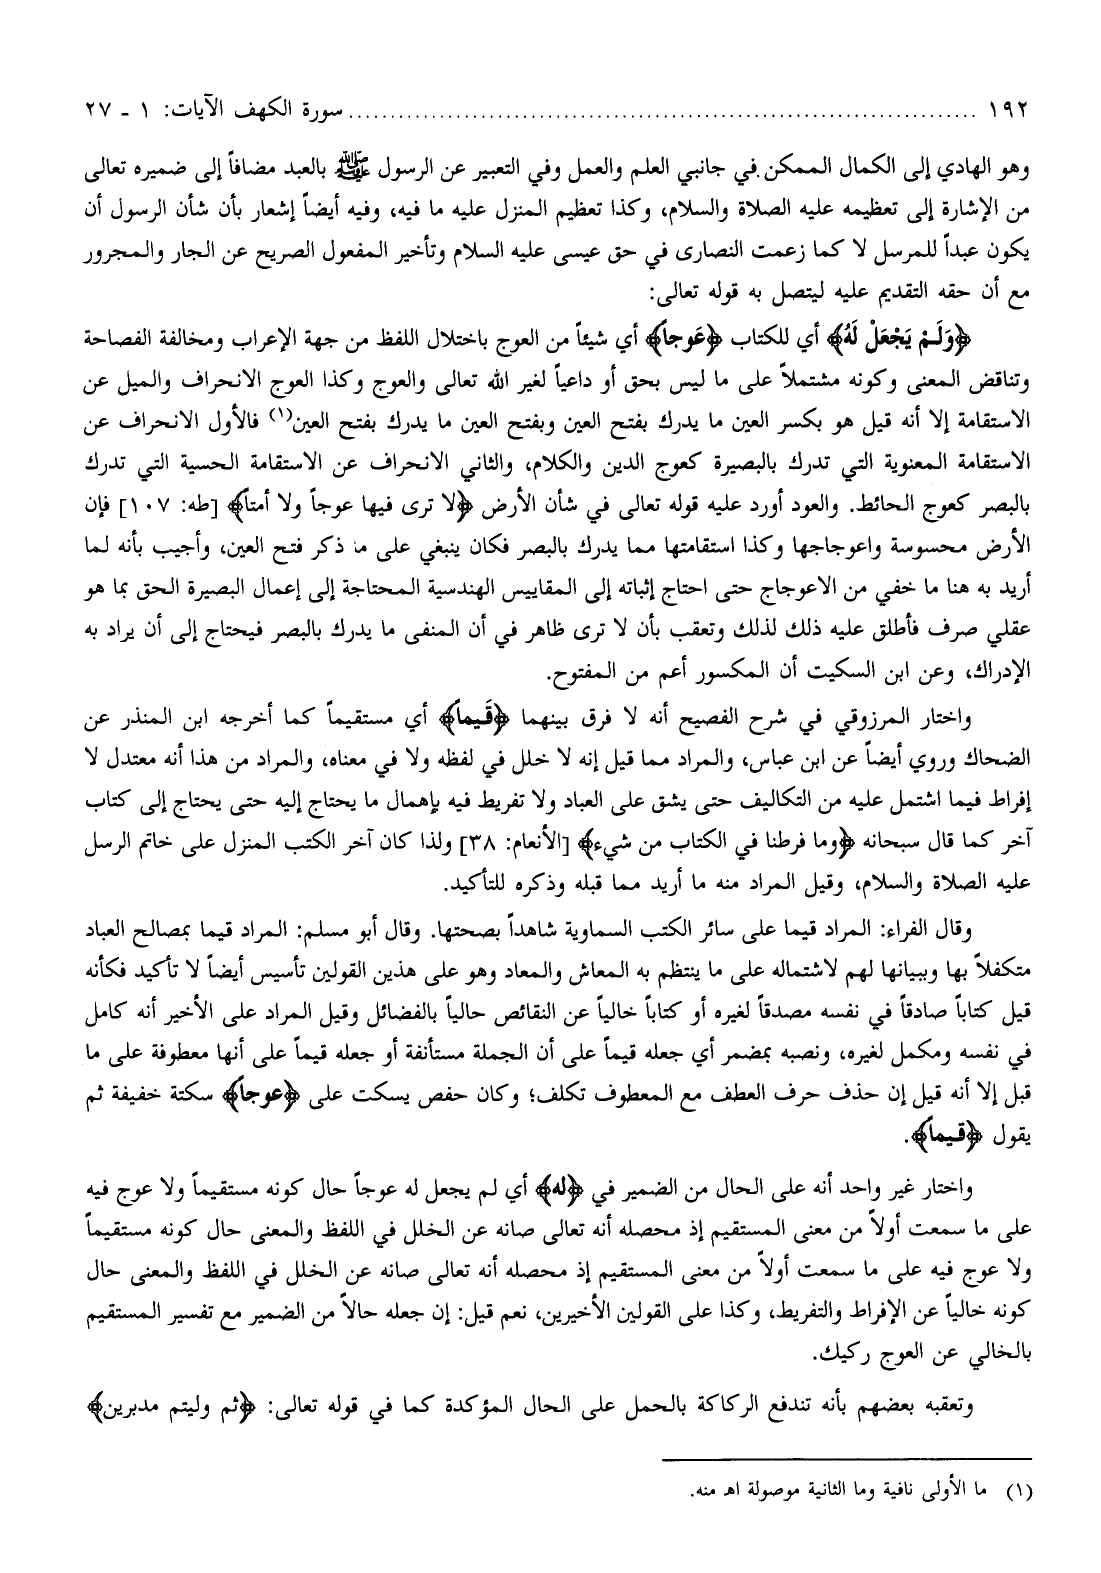 ١٩٢ ........................................ سورة الكهف الآيات: ١ - ٢٧
وهو الهادي إلى الكمال الممكن في جانبي العلم والعمل وفي التعبير عن الرسول ﷺ بالعبد مضافاً إلى ضميره تعالى
من الإشارة إلى تعظيمه عليه الصلاة والسلام، وكذا تعظيم المنزل عليه ما فيه، وفيه أيضاً إشعار بأن شأن الرسول أن
يكون عبداً للمرسل لا كما زعمت النصارى في حق عيسى عليه السلام وتأخير المفعول الصريح عن الجار والمجرور
مع أن حقه التقديم عليه ليتصل به قوله تعالى:
﴿وَلَمْ يَجْعَلْ لَهُ﴾ أي للكتاب ﴿عَوجاً﴾ أي شيئاً من العوج باختلال اللفظ من جهة الإعراب ومخالفة الفصاحة
وتناقض المعنى وكونه مشتملاً على ما ليس بحق أو داعياً لغير الله تعالى والعوج وكذا العوج الانحراف والميل عن
الاستقامة إلا أنه قيل هو بكسر العين ما يدرك بفتح العين وبفتح العين ما يدرك بفتح العين(١) فالأول الانحراف عن
الاستقامة المعنوية التي تدرك بالبصيرة كعوج الدين والكلام، والثاني الانحراف عن الاستقامة الحسية التي تدرك
بالبصر كعوج الحائط. والعود أورد عليه قوله تعالى في شأن الأرض ﴿لا ترى فيها عوجاً ولا أمتاً﴾ [طه: ١٠٧] فإن
الأرض محسوسة واعوجاجها وكذا استقامتها مما يدرك بالبصر فكان ينبغي على ما ذكر فتح العين، وأجيب بأنه لما
أريد به هنا ما خفي من الاعوجاج حتى احتاج إثباته إلى المقاييس الهندسية المحتاجة إلى إعمال البصيرة الحق بما هو
عقلي صرف فأطلق عليه ذلك لذلك وتعقب بأن لا ترى ظاهر في أن المنفى ما يدرك بالبصر فيحتاج إلى أن يراد به
الإدراك، وعن ابن السكيت أن المكسور أعم من المفتوح.
واختار المرزوقي في شرح الفصيح أنه لا فرق بينهما ﴿قَيماً﴾ أي مستقيماً كما أخرجه ابن المنذر عن
الضحاك وروي أيضاً عن ابن عباس، والمراد مما قيل إنه لا خلل في لفظه ولا في معناه، والمراد من هذا أنه معتدل لا
إفراط فيما اشتمل عليه من التكاليف حتى يشق على العباد ولا تفريط فيه بإهمال ما يحتاج إليه حتى يحتاج إلى كتاب
آخر كما قال سبحانه ﴿وما فرطنا في الكتاب من شيء﴾ [الأنعام: ٣٨] ولذا كان آخر الكتب المنزل على خاتم الرسل
عليه الصلاة والسلام، وقيل المراد منه ما أريد مما قبله وذكره للتأكيد.
وقال الفراء: المراد قيما على سائر الكتب السماوية شاهداً بصحتها. وقال أبو مسلم: المراد قيما بمصالح العباد
متكفلاً بها وببيانها لهم لاشتماله على ما ينتظم به المعاش والمعاد وهو على هذين القولين تأسيس أيضاً لا تأكيد فكأنه
قيل كتاباً صادقاً في نفسه مصدقاً لغيره أو كتاباً خالياً عن النقائص حالياً بالفضائل وقيل المراد على الأخير أنه كامل
في نفسه ومكمل لغيره، ونصبه بمضمر أي جعله قيماً على أن الجملة مستأنفة أو جعله قيماً على أنها معطوفة على ما
قبل إلا أنه قيل إن حذف حرف العطف مع المعطوف تكلف؛ وكان حفص يسكت على ﴿عوجا﴾ سكتة خفيفة ثم
يقول ﴿قيماً﴾.
واختار غير واحد أنه على الحال من الضمير في ﴿له﴾ أي لم يجعل له عوجاً حال كونه مستقيماً ولا عوج فيه
على ما سمعت أولاً من معنى المستقيم إذ محصله أنه تعالى صانه عن الخلل في اللفظ والمعنى حال كونه مستقيماً
ولا عوج فيه على ما سمعت أولاً من معنى المستقيم إذ محصله أنه تعالى صانه عن الخلل في اللفظ والمعنى حال
كونه خالياً عن الإفراط والتفريط، وكذا على القولين الأخيرين، نعم قيل: إن جعله حالاً من الضمير مع تفسير المستقيم
بالخالي عن العوج ركيك.
وتعقبه بعضهم بأنه تندفع الركاكة بالحمل على الحال المؤكدة كما في قوله تعالى: ﴿ثم وليتم مدبرين﴾
(١) ما الأولى نافية وما الثانية موصولة اهـ منه.